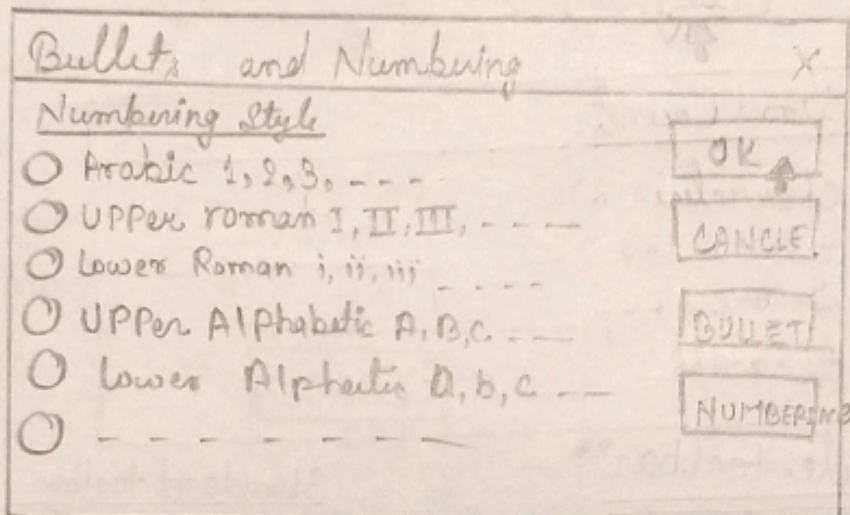 Bullets and Numbering X
Numbering Style
Arabic 1, 2, 3, - - - -
UPPer roman I, II, III, - - - -
Lower Roman i, ii, iii - - - -
UPPer Alphabetic A, B, C. - - -
Lower Alphaetic a, b, c - -
- - - - - - - -
OK
CANCLE
BULLET
NUMBERING